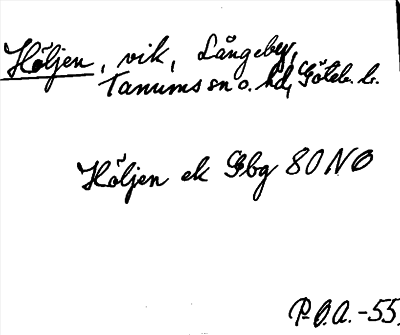 Höljen, vik, Långeby,
Tanums sn o. hd, Göteb. l.
Höljen ek Gbg 80 NO
P.O.A. -55.